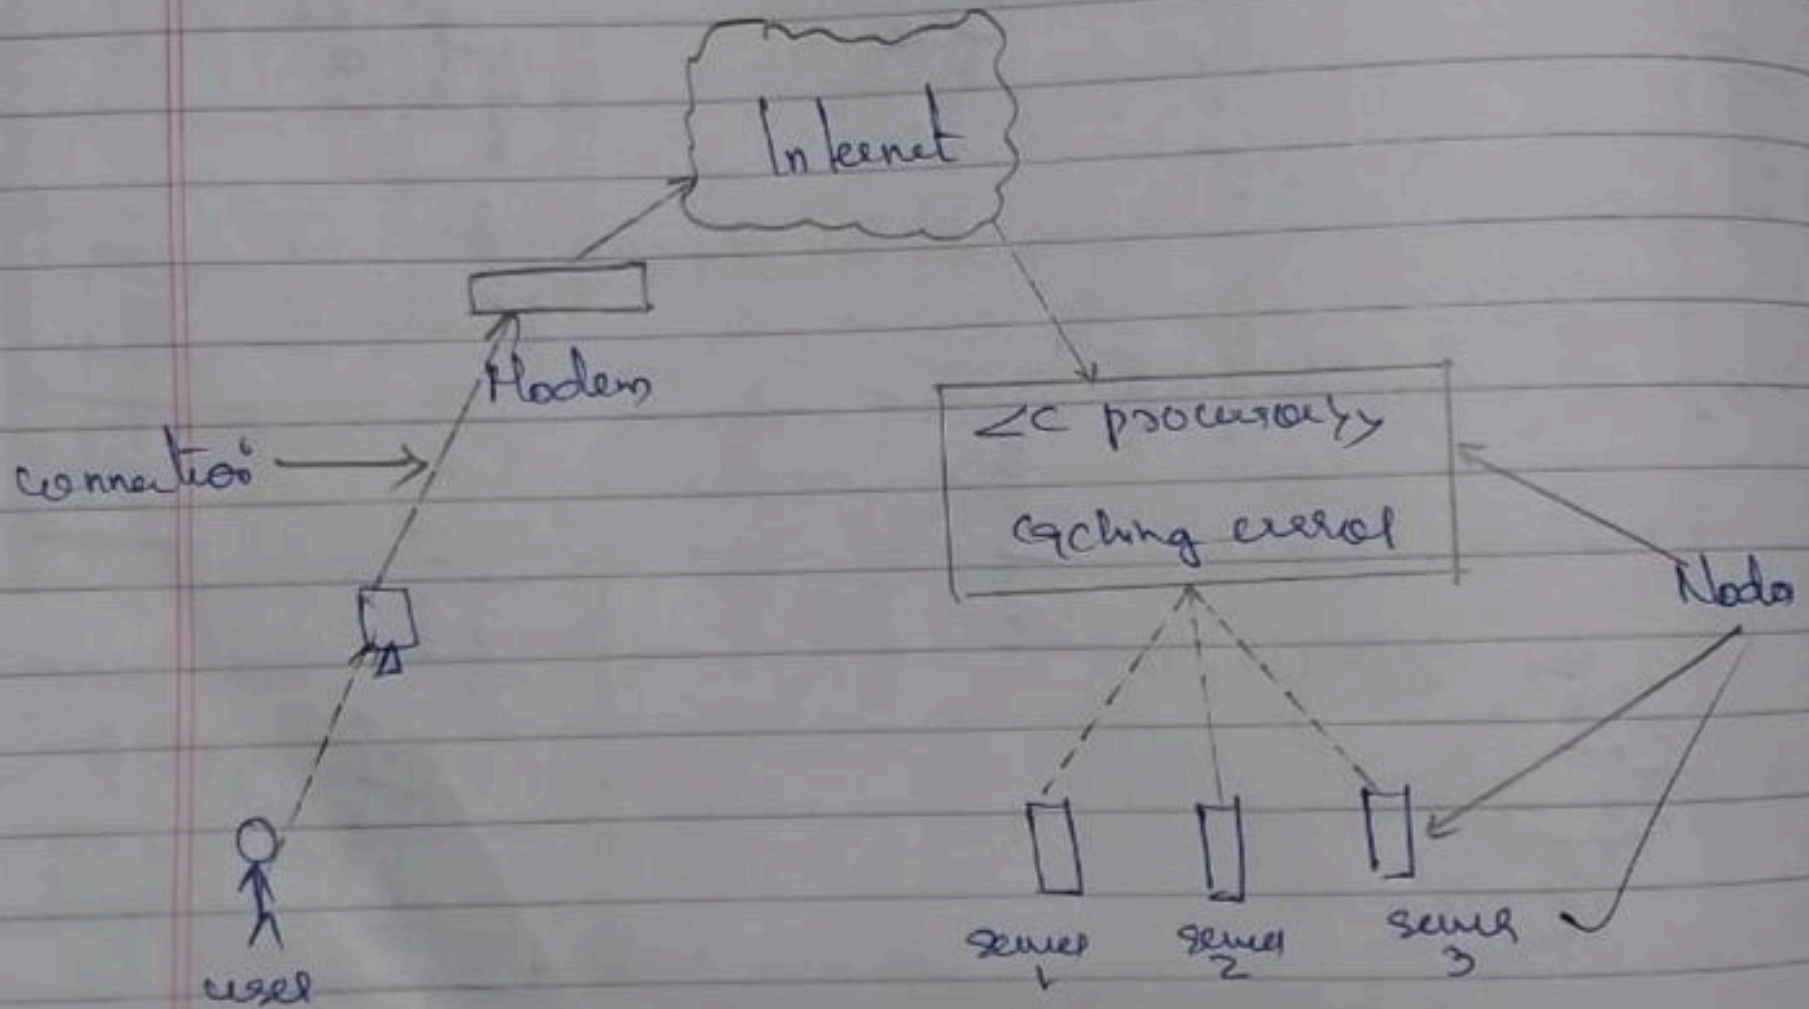 Internet
Modem
connection
<< processor>>
caching server
Node
user
server
1
server
2
server
3